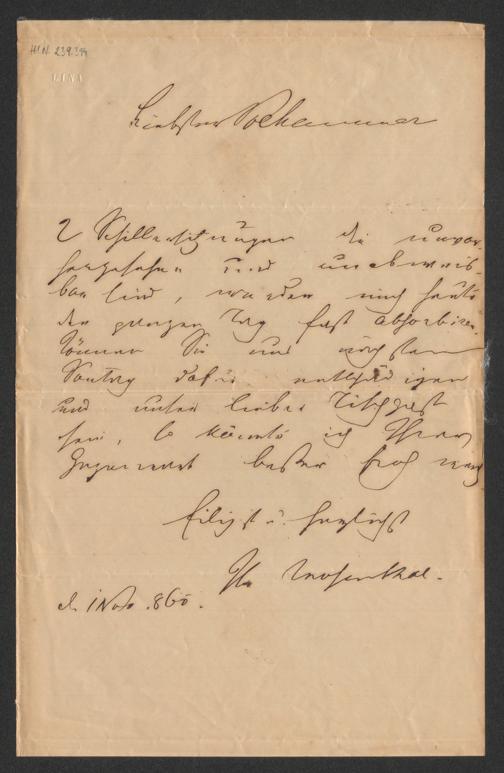 H.I.N. 239.344
Liebster Pollhammer
2 Schillersitzungen die unvor-
hergesehen und unabweis-
bar sind, werden mich heute
den ganzen Tag fast absorbiren.
Können Sie uns nächsten
Sontag dafür entschädigen
und unser lieber Tischgast
sein, so könnte ich Ihrer
Gegenwart besser froh werden
Eiligst u. herzlichst
Ihr Mosenthal.
d. 1 Nov. 860.